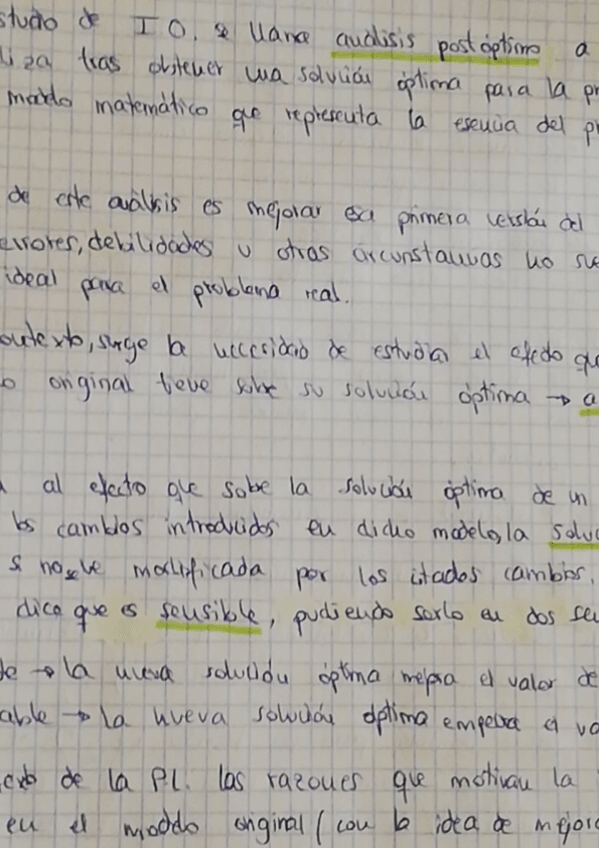 studio de I O. se llama análisis postóptimo a
liza tras obtener una solución óptima para la pr
modelo matemático que representa la esencia del pr
de este análisis es mejorar esa primera versión del
errores, debilidades u otras circunstancias no su
ideal para el problema real.
ontexto, surge la necesidad de estudiar el efecto qu
o original tiene sobre su solución óptima → a
al efecto que sobe la solución óptima de un
los cambios introducidos en dicho modelo, la soluc
s no se ve modificada por los citados cambios.
dice que es sensible, pudiendo serlo en dos se
le → la nueva solución óptima mejora el valor de
able → la nueva solución óptima empeora el va
exto de la P.L. las razones que motivan la
en el modelo original (con la idea de mejora